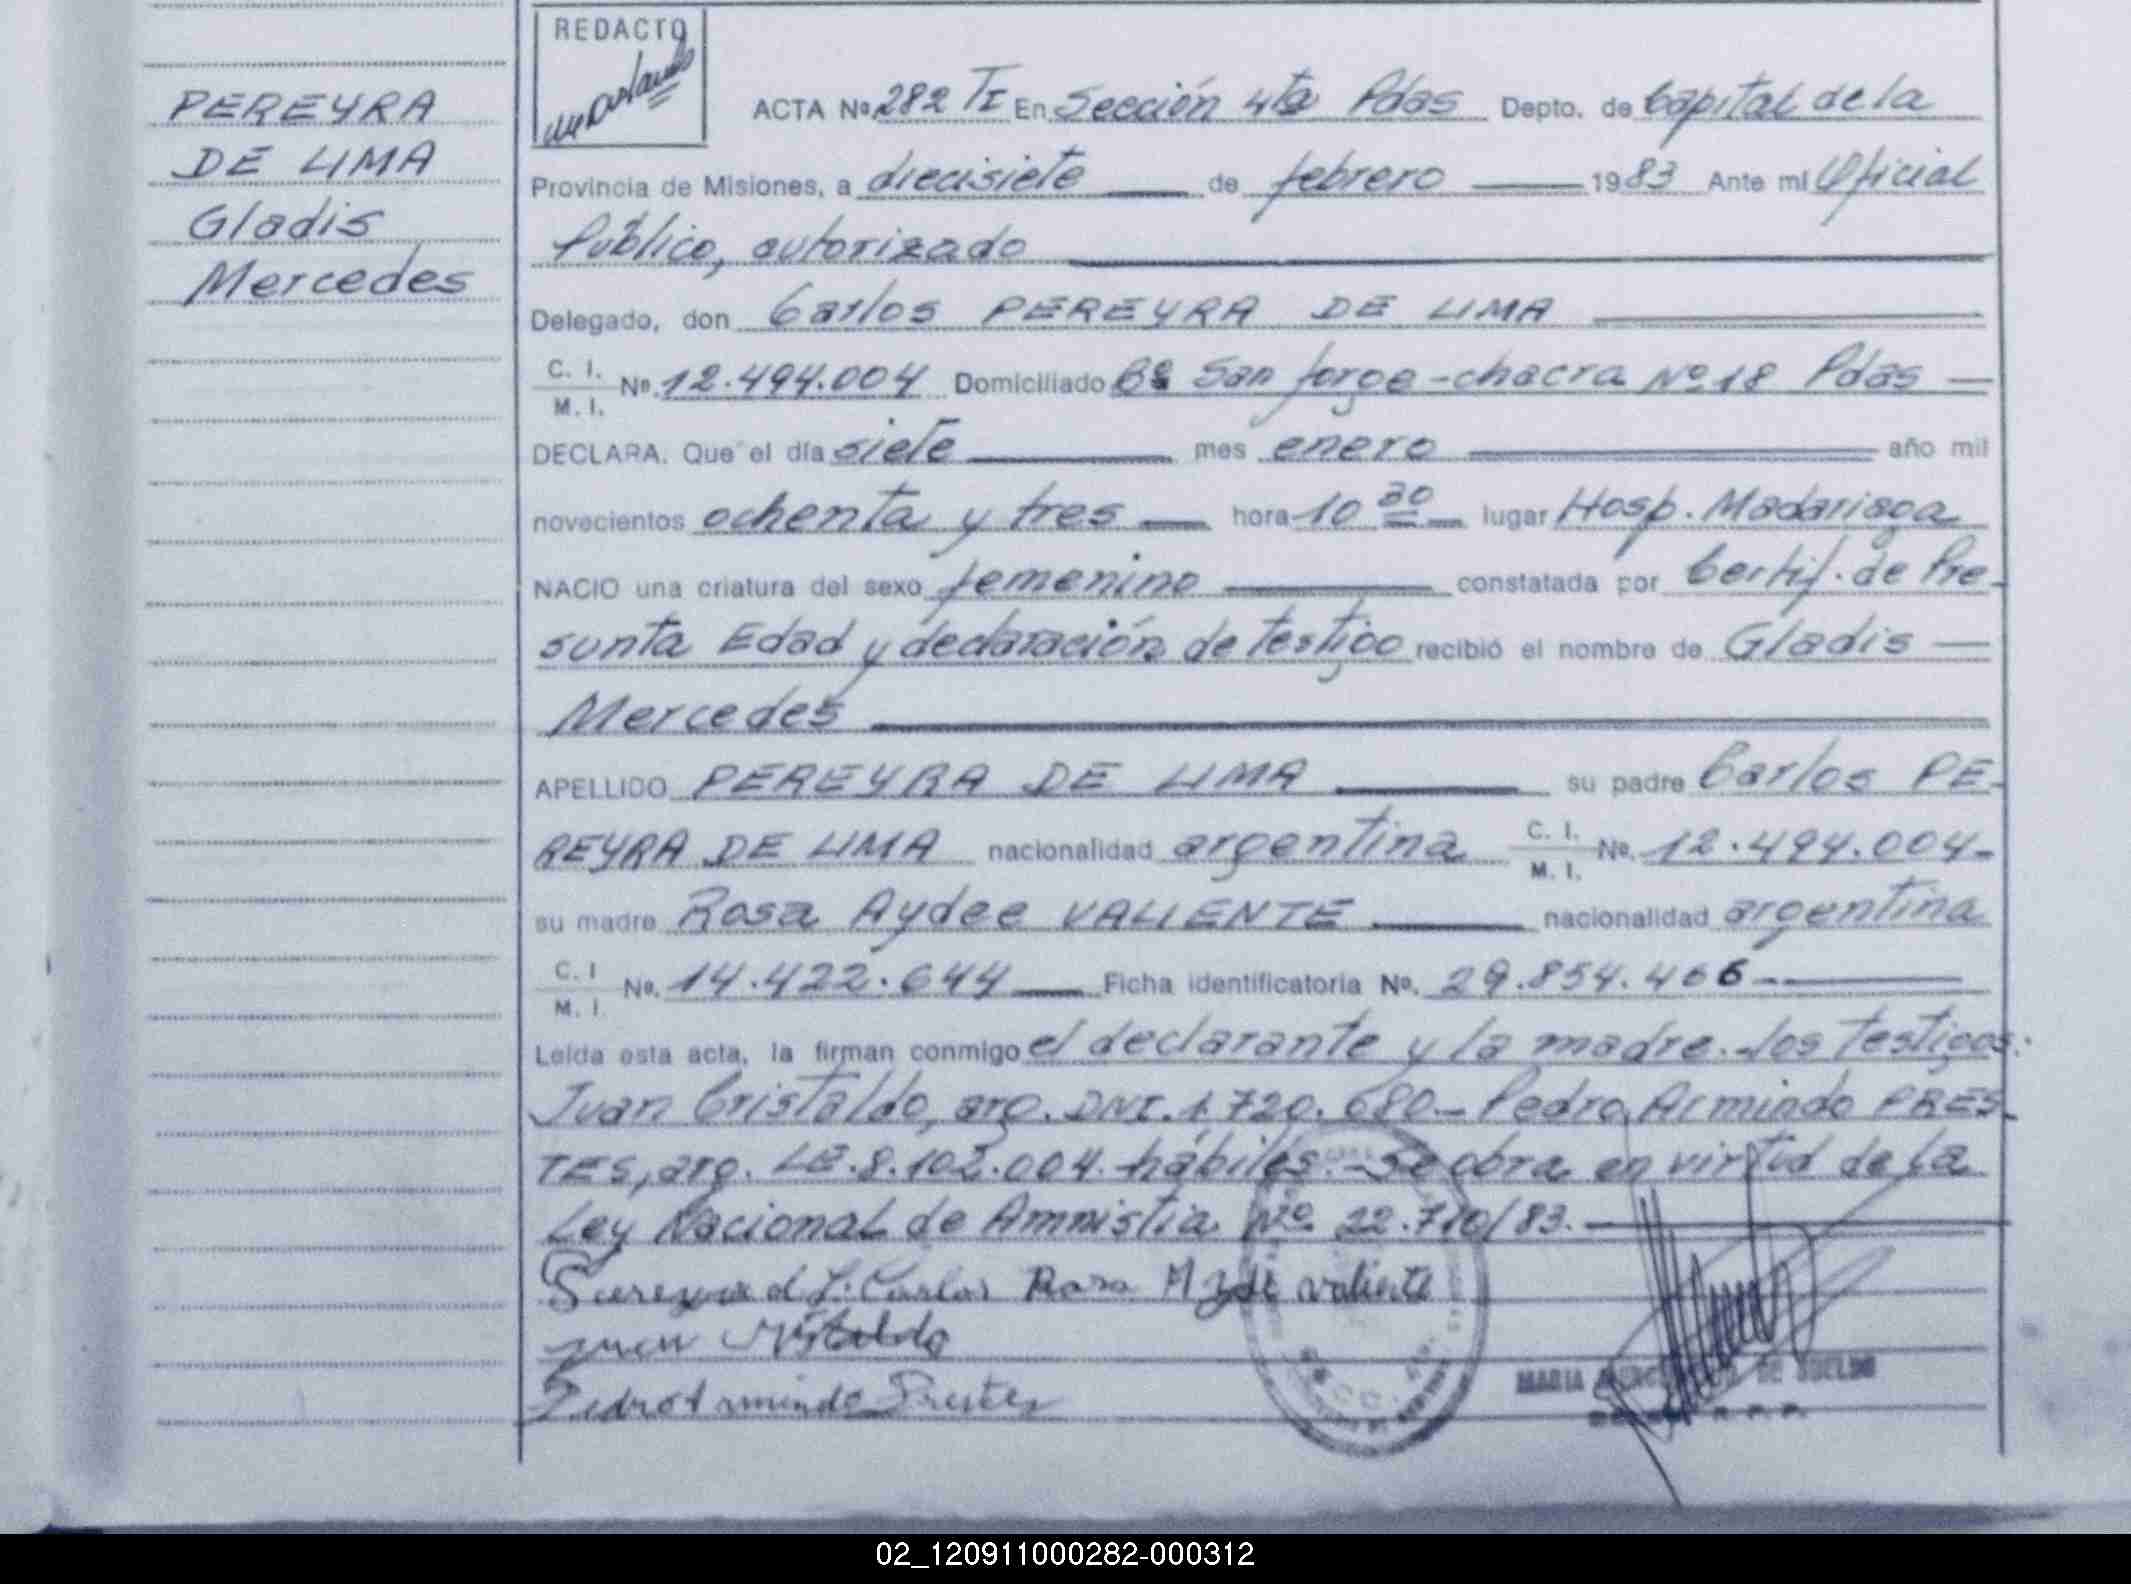 PEREYRA
DE LIMA
Gladis
Mercedes
REDACTO
ACTA Nº 282 TI En Sección 4ta Pdas Depto. de Capital de la
Provincia de Misiones, a diecisiete de febrero 1983 Ante mi Oficial
Público, autorizado
Delegado, don Carlos PEREYRA DE LIMA
C. I.
M. I. Nº. 12.494.004 Domiciliado Bº San Jorge - chacra Nº 18 Pdas
DECLARA. Que el día siete mes enero año mil
novecientos ochenta y tres hora 10 30 lugar Hosp. Madariaga
NACIO una criatura del sexo femenino constatada por Certif. de Pre-
sunta Edad y declaración de testigo recibió el nombre de Gladis
Mercedes
APELLIDO PEREYRA DE LIMA su padre Carlos PE-
REYRA DE LIMA nacionalidad argentina C. I.
M. I. Nº. 12.494.004-
su madre Rosa Aydee VALIENTE nacionalidad argentina
C. I
M. I. Nº. 14.422.644 Ficha identificatoria Nº. 29.854.466-
Leída esta acta, la firman conmigo el declarante y la madre.-los testigos:
Juan Cristaldo, arg. DNI. 1.720.680- Pedro Armindo PRES-
TES, arg. LE. 8.102.004. hábiles.- Se obra en virtud de la
Ley Nacional de Amnistía Nº 22.710/83.-
d L. Carlos Rosa Ayde valiente
juan cristaldo
Pedro Armindo Prestes
MARIA DE
02_120911000282-000312